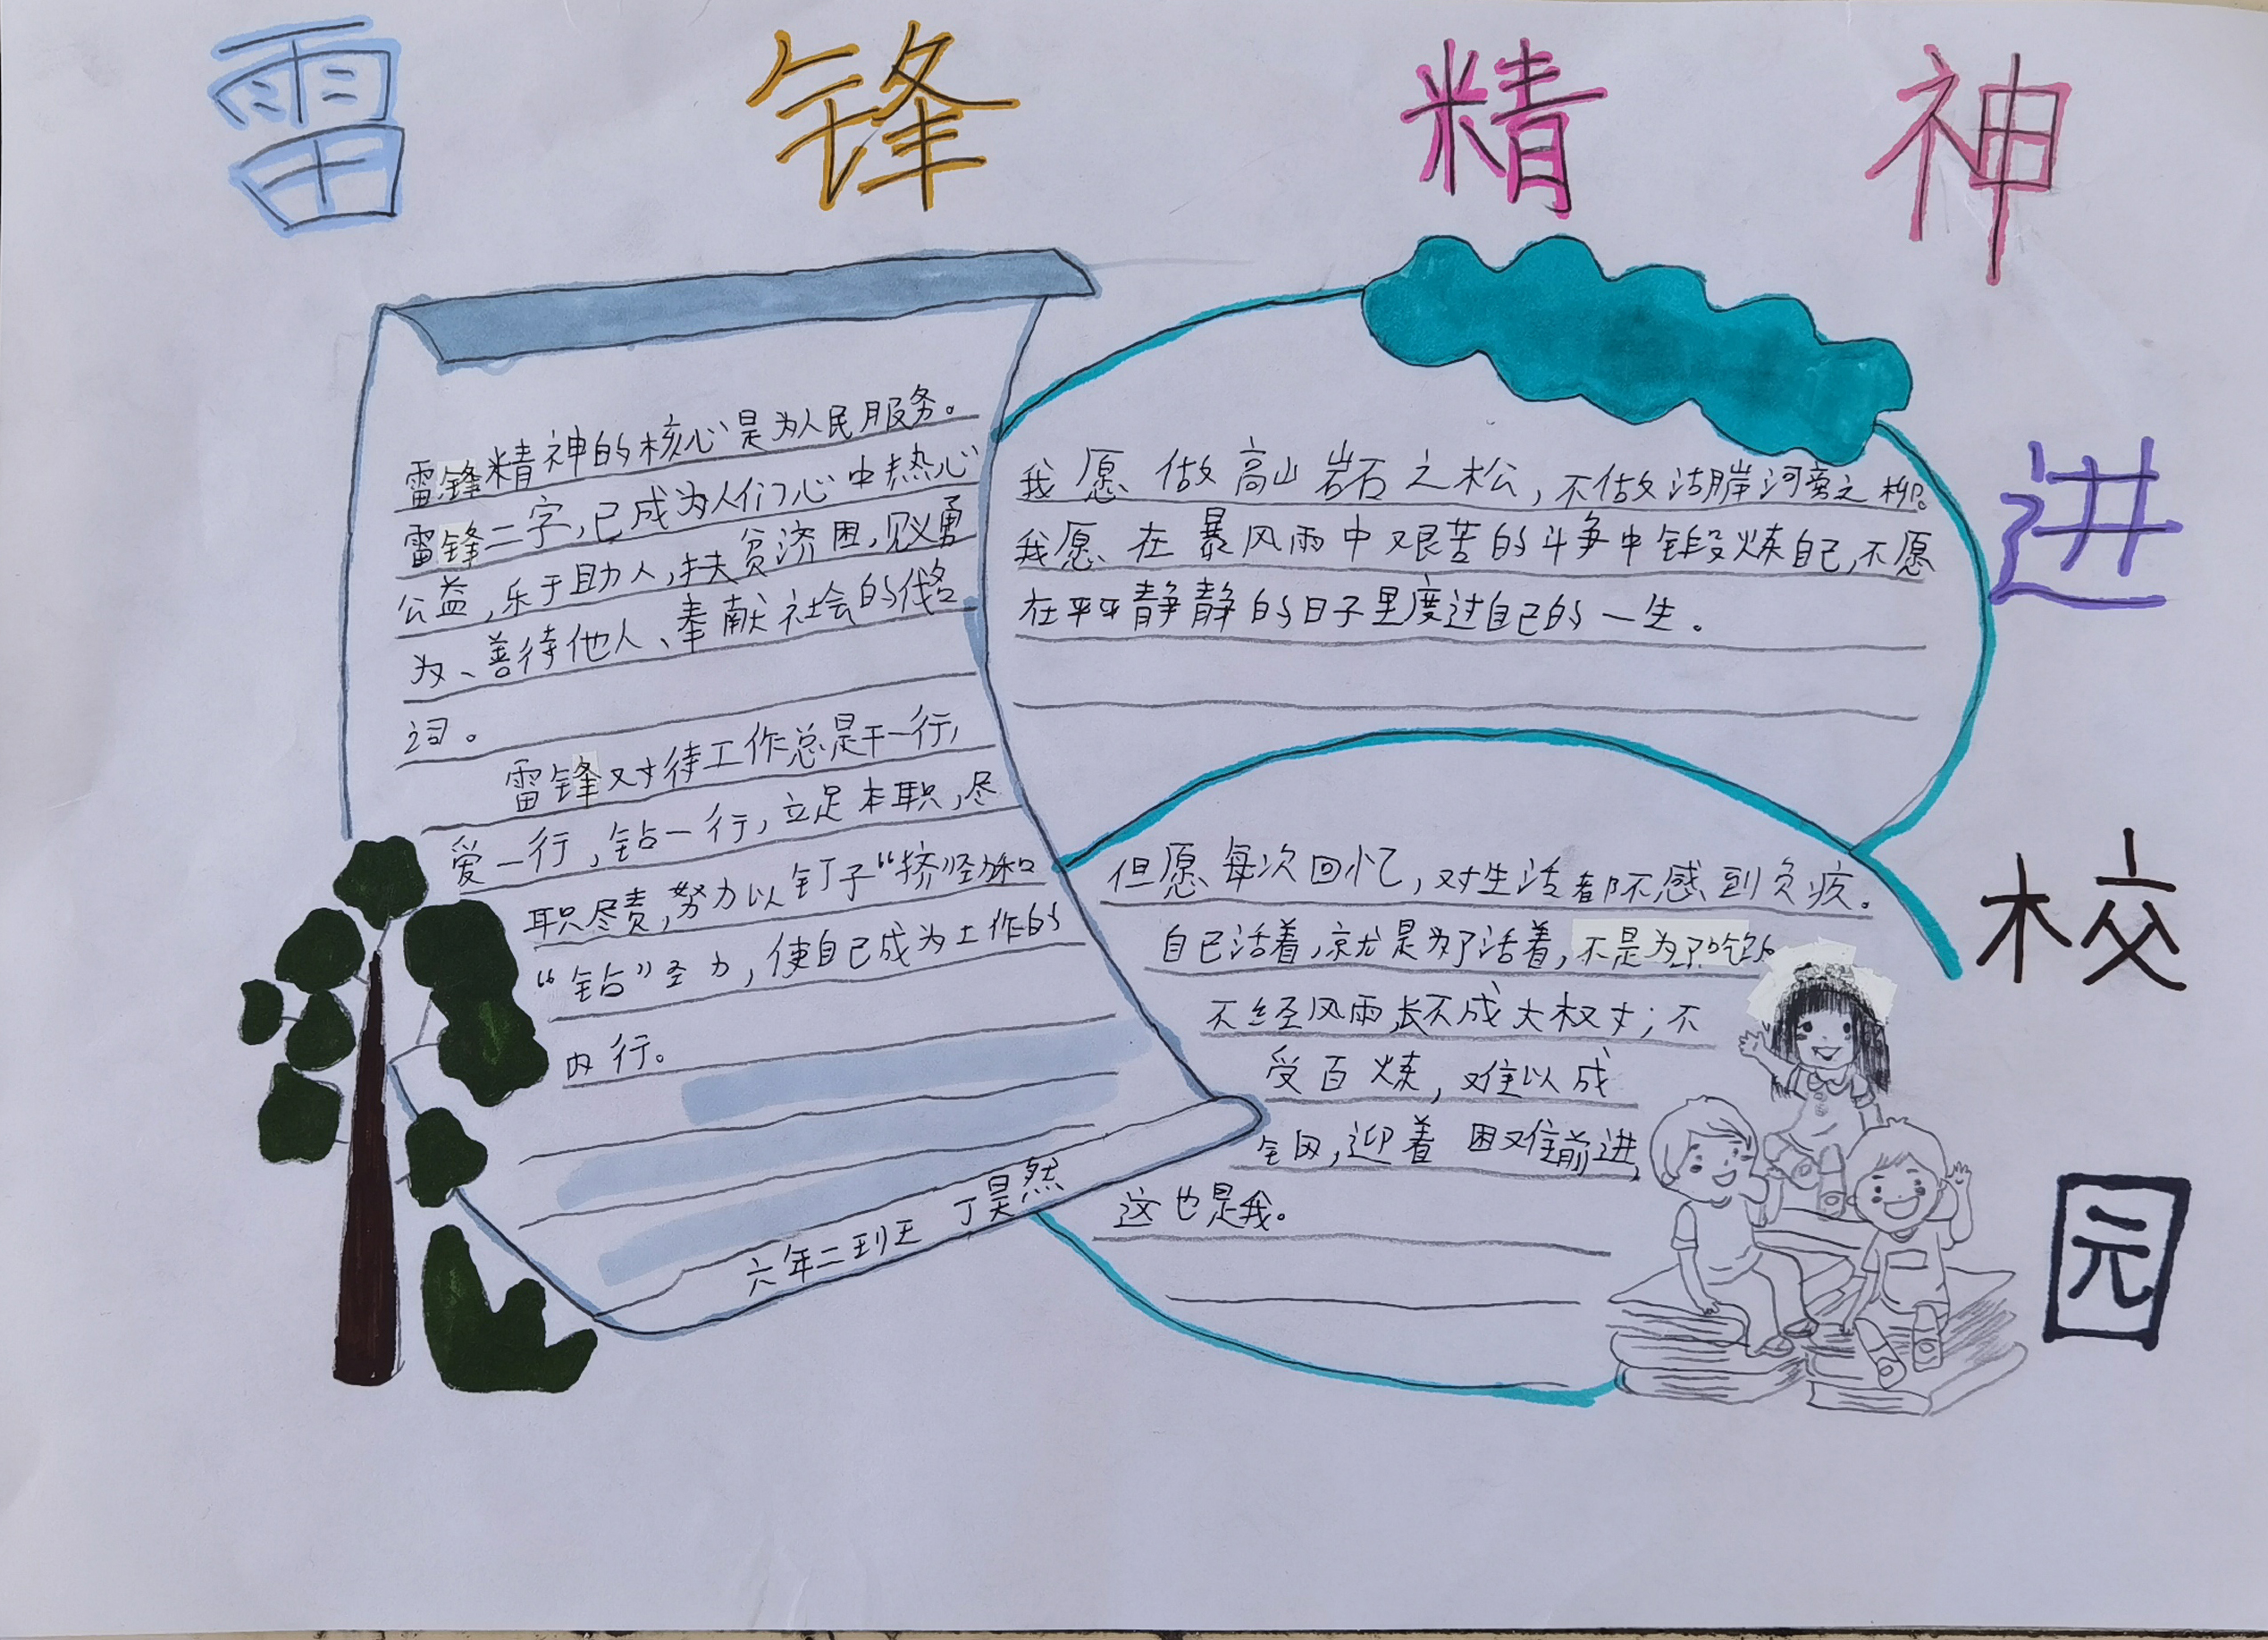 雷锋精神进校园
雷锋精神的核心是为人民服务。
雷锋二字,已成为人们心中热心
公益,乐于助人,扶贫济困,见义勇
为、善待他人、奉献社会的代名
词。
雷锋对待工作总是干一行,
爱一行,钻一行,立足本职,尽
职尽责,努力以钉子“挤”劲和
“钻”劲,使自己成为工作的
内行。
六年二班 丁昊然
我愿做高山岩石之松,不做湖岸河旁之柳。
我愿在暴风雨中艰苦的斗争中锻炼自己,不愿
在平平静静的日子里度过自己的一生。
但愿每次回忆,对生活都不感到负疚。
自己活着,就是为了活着,不是为了吃饭
不经风雨,长不成大树;不
受百炼,难以成
钢,迎着困难前进,
这也是我。